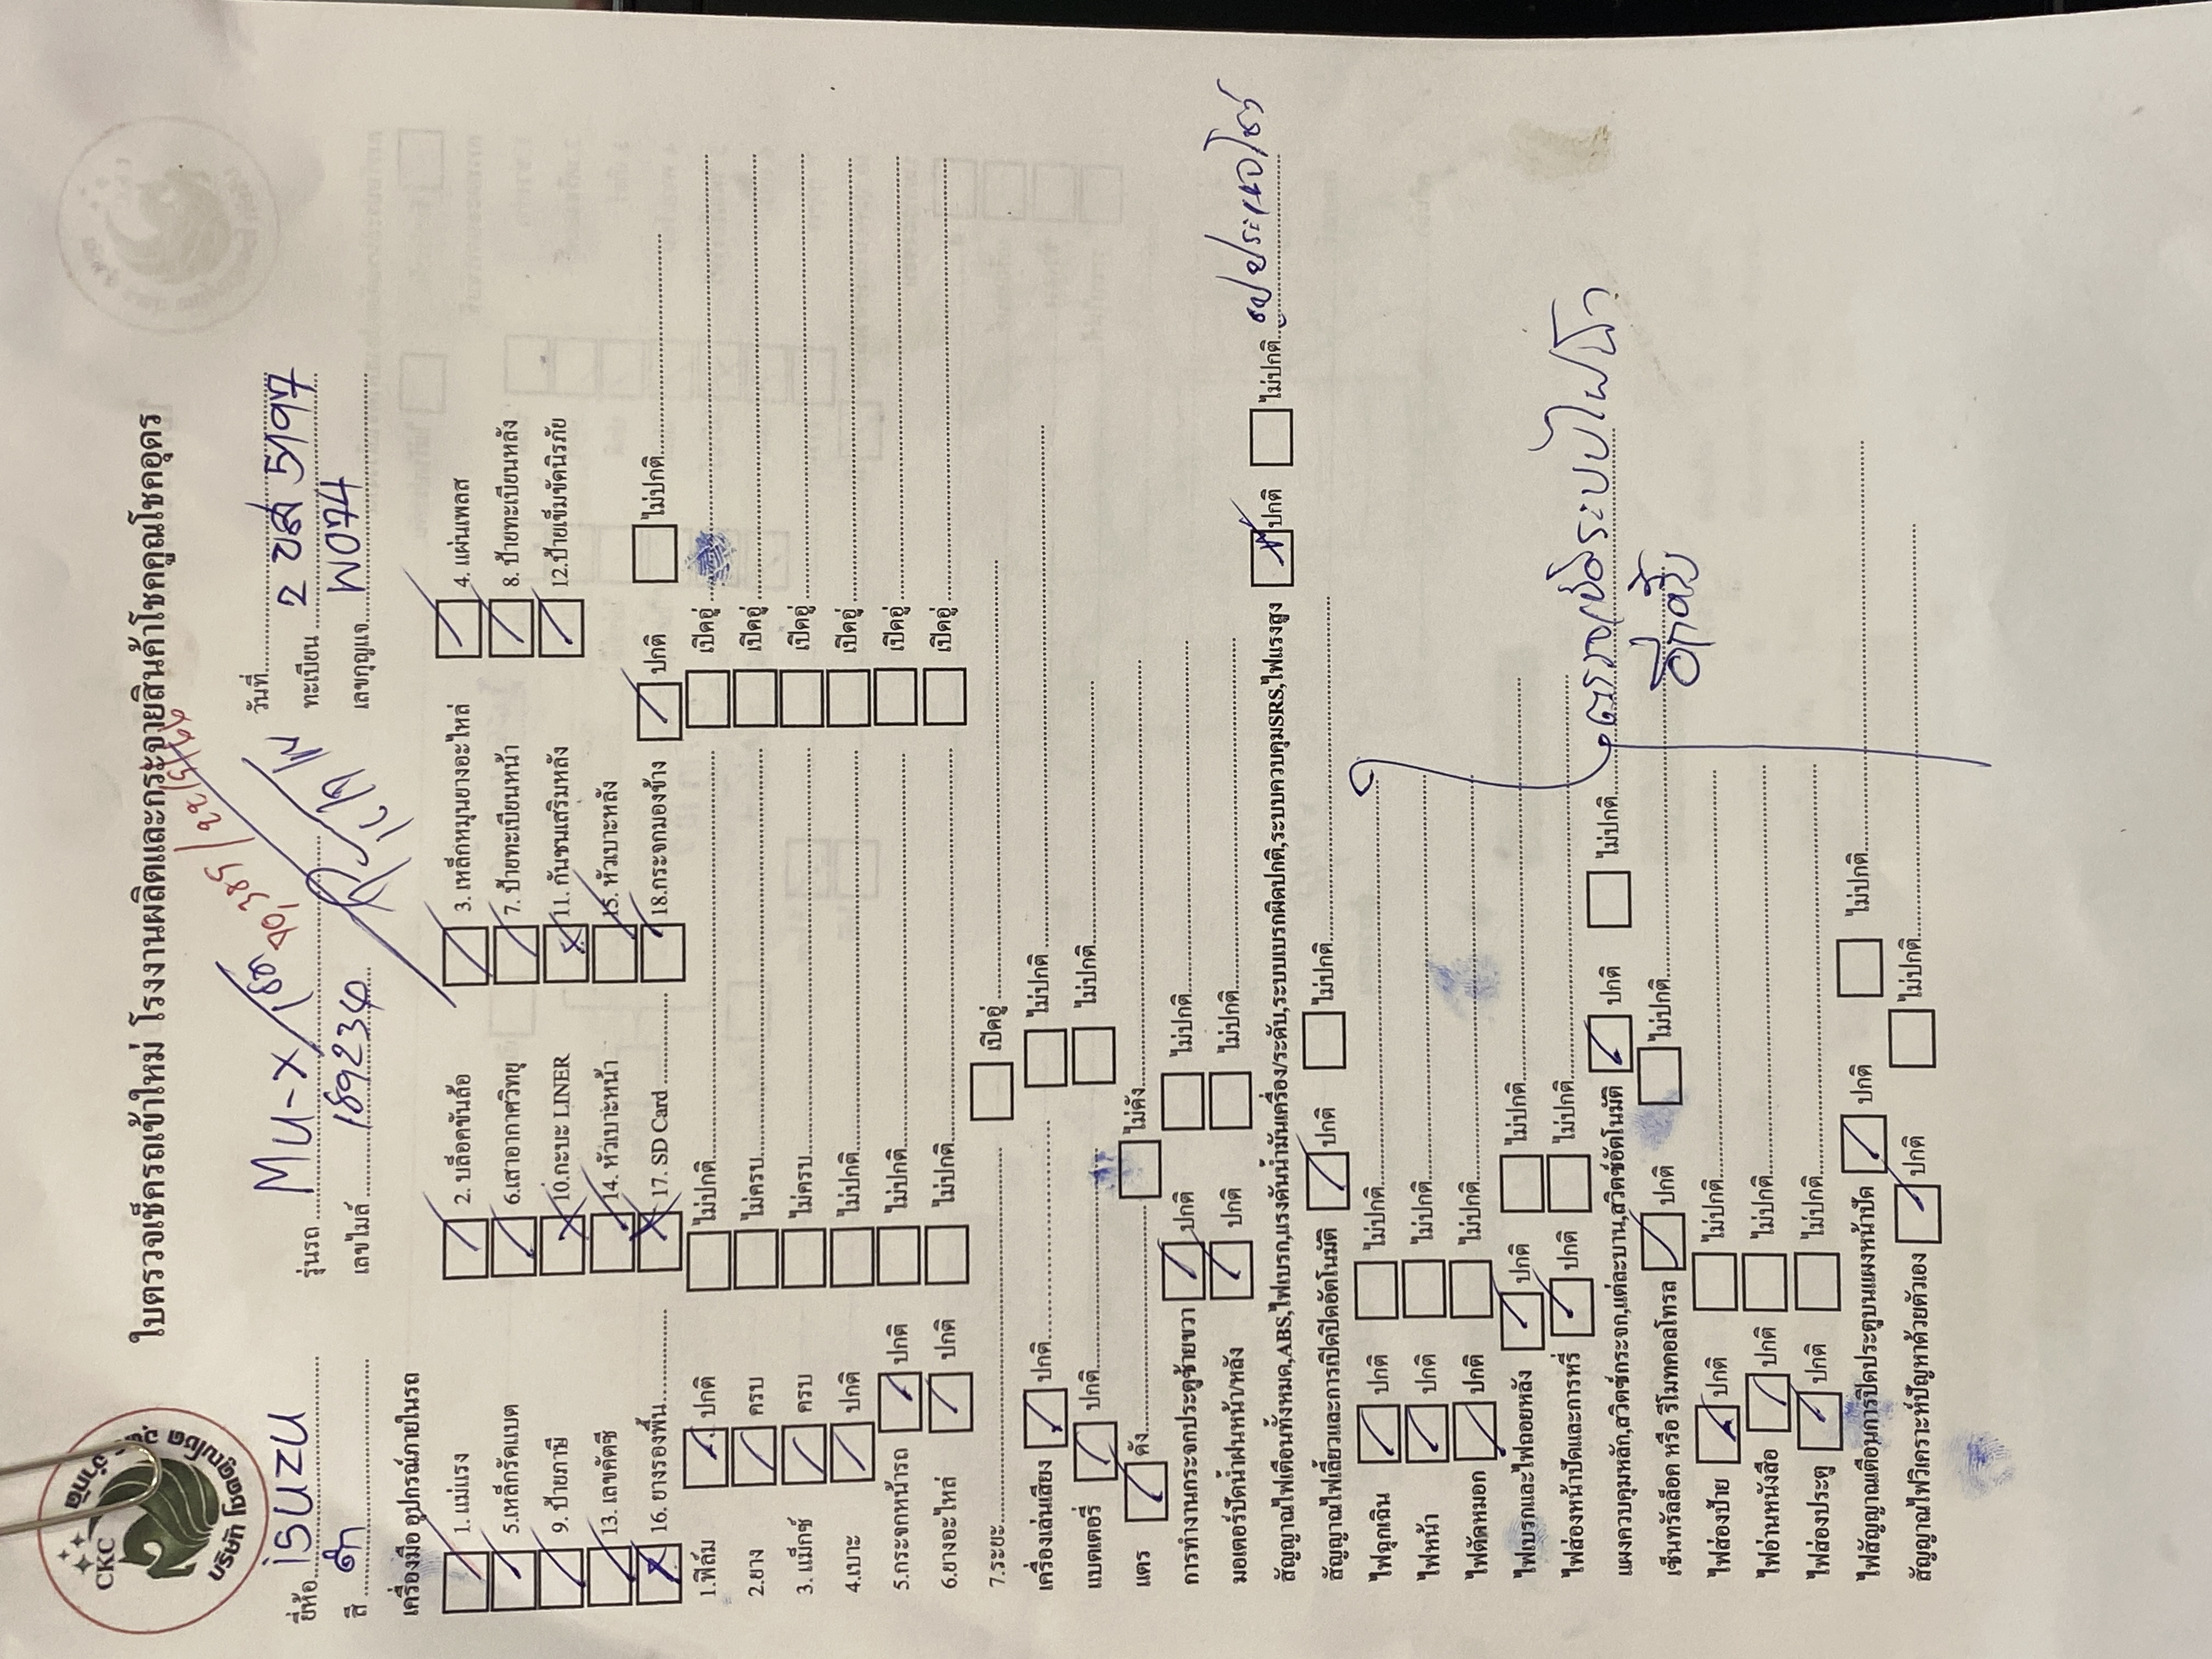 ใบตรวจเช็ครถเข้าใหม่ โรงงานผลิตและกระจายสินค้าโชคคูณโชคอุดร
CKC
ยี่ห้อ isuzu รุ่นรถ Mu-x วันที่
ทะเบียน 2 ขส 5197
สี ดำ เลขไมล์ 189234 เลขกุญแจ W074
เครื่องมือ อุปกรณ์ภายในรถ
1. แม่แรง 2. บล็อคขันล้อ 3. เหล็กหมุนยางอะไหล่ 4. แผ่นเพลส
5.เหล็กรัดแบต 6.เสาอากาศวิทยุ 7. ป้ายทะเบียนหน้า 8. ป้ายทะเบียนหลัง
9. ป้ายภาษี 10.กะบะ LINER 11. กันชนเสริมหลัง 12.ป้ายเข็มขัดนิรภัย
13. เลขคัตซี 14. หัวเบาะหน้า 15. หัวเบาะหลัง
16. ยางรองพื้น 17. SD Card 18.กระจกมองข้าง ปกติ ไม่ปกติ
1.ฟิล์ม ปกติ ไม่ปกติ เปิดอู่
2.ยาง ครบ ไม่ครบ เปิดอู่
3. แม็กซ์ ครบ ไม่ครบ เปิดอู่
4.เบาะ ปกติ ไม่ปกติ เปิดอู่
5.กระจกหน้ารถ ปกติ ไม่ปกติ เปิดอู่
6.ยางอะไหล่ ปกติ ไม่ปกติ เปิดอู่
7.ระยะ เปิดอู่
เครื่องเล่นเสียง ปกติ ไม่ปกติ
แบตเตอรี่ ปกติ ไม่ปกติ
แตร ดัง ไม่ดัง
การทำงานกระจกประตูซ้ายขวา ปกติ ไม่ปกติ
มอเตอร์ปัดน้ำฝนหน้า/หลัง ปกติ ไม่ปกติ
สัญญาณไฟเตือนทั้งหมด,ABS,ไฟเบรก,แรงดันน้ำมันเครื่อง/ระดับ,ระบบเบรกผิดปกติ,ระบบควบคุมSRS,ไฟแรงสูง ปกติ ไม่ปกติ รูปประแจโชว์
สัญญาณไฟเลี้ยวและการเปิดปิดอัตโนมัติ ปกติ ไม่ปกติ
ไฟฉุกเฉิน ปกติ ไม่ปกติ
ไฟหน้า ปกติ ไม่ปกติ
ไฟตัดหมอก ปกติ ไม่ปกติ
ไฟเบรกและไฟถอยหลัง ปกติ ไม่ปกติ
ไฟส่องหน้าปัดและการหรี่ ปกติ ไม่ปกติ
แผงควบคุมหลัก,สวิตช์กระจก,แต่ละบาน,สวิตช์อัตโนมัติ ปกติ ไม่ปกติ ตรวจเช็คระบบไฟฟ้า
เซ็นทรัลล็อค หรือ รีโมทคอลโทรล ปกติ ไม่ปกติ อีกครั้ง
ไฟส่องป้าย ปกติ ไม่ปกติ
ไฟอ่านหนังสือ ปกติ ไม่ปกติ
ไฟส่องประตู ปกติ ไม่ปกติ
ไฟสัญญาณเตือนการปิดประตูบนแผงหน้าปัด ปกติ ไม่ปกติ
สัญญาณไฟวิเคราะห์ปัญหาด้วยตัวเอง ปกติ ไม่ปกติ